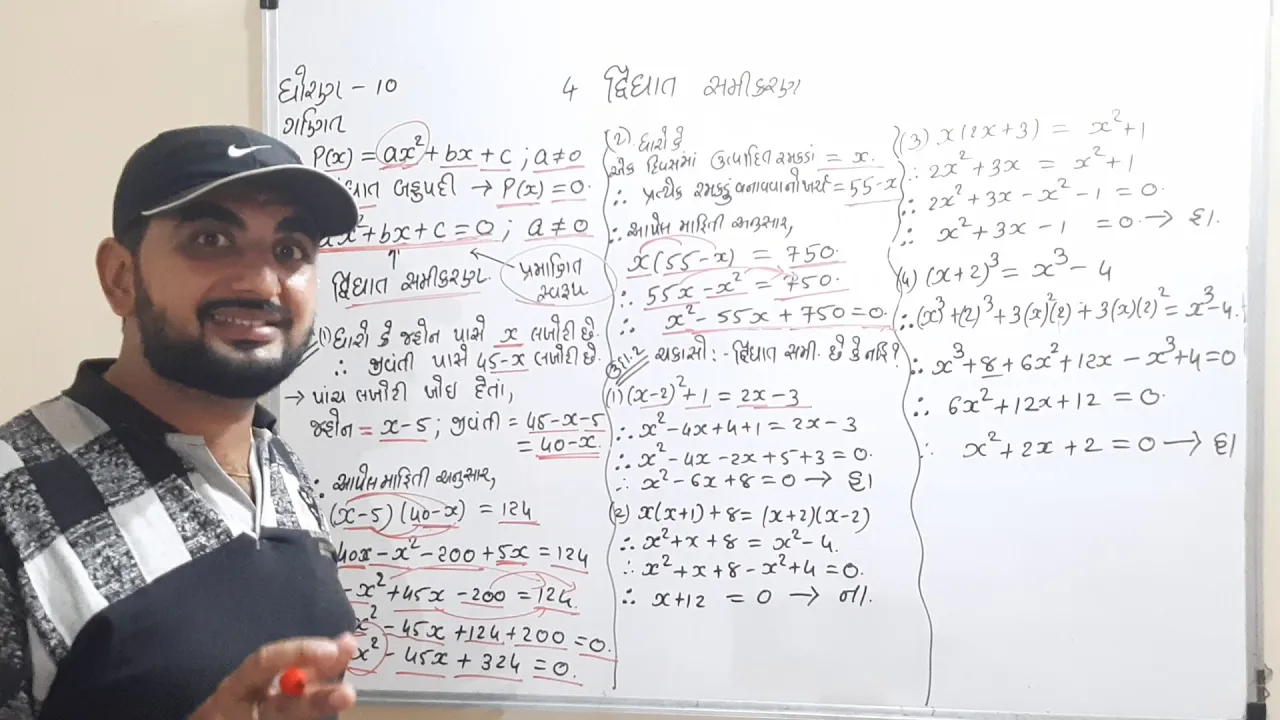 ધોરણ - 10
ગણિત
4 દ્વિઘાત સમીકરણ
P(x) = ax² + bx + c ; a ≠ 0
બહુપદી → P(x) = 0.
ax² + bx + c = 0 ; a ≠ 0
દ્વિઘાત સમીકરણ
પ્રમાણિત
સ્વરૂપ
(1) ધારો કે જ્હોન પાસે x લખોટી છે.
∴ જીવંતી પાસે 45-x લખોટી છે.
→ પાંચ લખોટી ખોઇ દેતાં,
જ્હોન = x-5 ; જીવંતી = 45-x-5
= 40-x.
∴ આપેલ માહિતી અનુસાર,
(x-5) (40-x) = 124
40x - x² - 200 + 5x = 124
-x² + 45x - 200 = 124.
x² - 45x + 124 + 200 = 0.
x² - 45x + 324 = 0.
(2) ધારો કે
એક દિવસમાં ઉત્પાદિત રમકડાં = x.
∴ પ્રત્યેક રમકડું બનાવવાનો ખર્ચ = 55-x
∴ આપેલ માહિતી અનુસાર,
x(55-x) = 750.
∴ 55x - x² = 750.
∴ x² - 55x + 750 = 0.
ઉદા.2 ચકાસો :- દ્વિઘાત સમી. છે કે નહિ?
(1) (x-2)² + 1 = 2x - 3
∴ x² - 4x + 4 + 1 = 2x - 3
∴ x² - 4x - 2x + 5 + 3 = 0.
∴ x² - 6x + 8 = 0 → હા.
(2) x(x+1) + 8 = (x+2)(x-2)
∴ x² + x + 8 = x² - 4.
∴ x² + x + 8 - x² + 4 = 0.
∴ x + 12 = 0 → ના.
(3) x(2x+3) = x² + 1
∴ 2x² + 3x = x² + 1
∴ 2x² + 3x - x² - 1 = 0.
∴ x² + 3x - 1 = 0. → હા.
(4) (x+2)³ = x³ - 4
∴ (x)³ + (2)³ + 3(x)²(2) + 3(x)(2)² = x³ - 4.
∴ x³ + 8 + 6x² + 12x - x³ + 4 = 0
∴ 6x² + 12x + 12 = 0.
∴ x² + 2x + 2 = 0 → હા